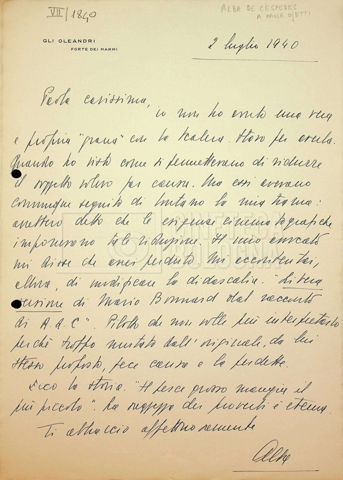 VII/1840
ALBA DE CESPEDES
A PAOLA OJETTI
GLI OLEANDRI
FORTE DEI MARMI
2 luglio 1940
Paola carissima,
io non ho avuto una vera
e propria "grana" con la Scalera. Stavo per averla.
Quando ho visto come si permettevano di ridurre
il soggetto volevo far causa. Ma essi avevano
comunque seguito di lontano la mia trama:
avrebbero detto che le esigenze cinematografiche
imponevano tale riduzione. Il mio avvocato
mi disse che avrei perduto. Mi accontentai,
allora, di modificare la didascalia. "Libera
versione di Mario Bonnard dal racconto
di A d C". Pilotto che non volle più interpretarlo
perché troppo mutato dall'originale, da lui
stesso proposto, fece causa e la perdette.
Ecco la storia. "Il pesce grosso mangia il
più piccolo". La saggezza dei proverbi è eterna.
Ti abbraccio affettuosamente
Alba